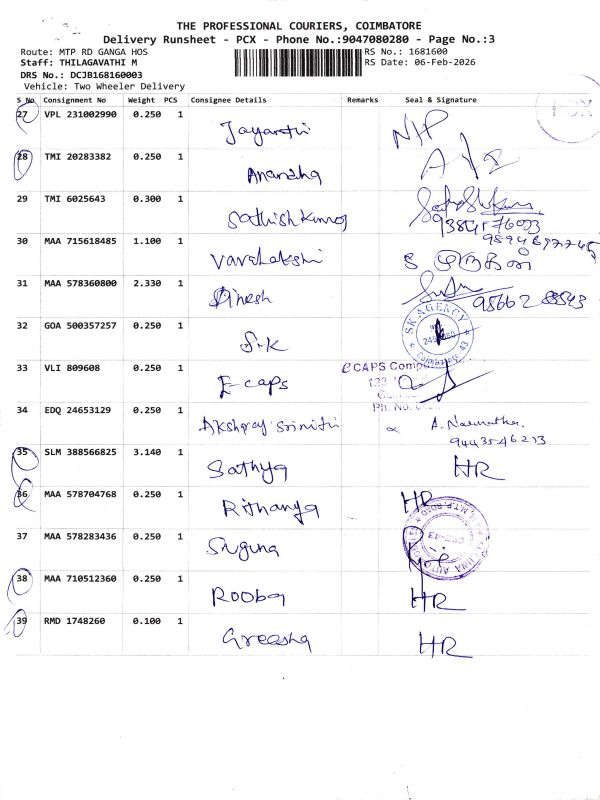 THE PROFESSIONAL COURIERS, COIMBATORE
Delivery Runsheet - PCX - Phone No.:9047080280 - Page No.:3
Route: MTP RD GANGA HOS RS No.: 1681600
Staff: THILAGAVATHI M RS Date: 06-Feb-2026
DRS No.: DCJB168160003
Vehicle: Two Wheeler Delivery
S No Consignment No Weight PCS Consignee Details Remarks Seal & Signature
PCX
27 VPL 231002990 0.250 1 Jayanthi
28 TMI 20283382 0.250 1
29 TMI 6025643 0.300 1 Sathishkumar
30 MAA 715618485 1.100 1 Varalakshi
31 MAA 578360800 2.330 1 Dinesh
SK AGENCY
Coimbatore 43
32 GOA 500357257 0.250 1 S.K
33 VLI 809608 0.250 1 E-caps
eCAPS
34 EDQ 24653129 0.250 1 Akshray Srinithi
Ph. No.
35 SLM 388566825 3.140 1 Sathya HR
36 MAA 578704768 0.250 1 Rithanya HR
37 MAA 578283436 0.250 1 Suguna
38 MAA 710512360 0.250 1 Rooba HR
39 RMD 1748260 0.100 1 Greesha HR